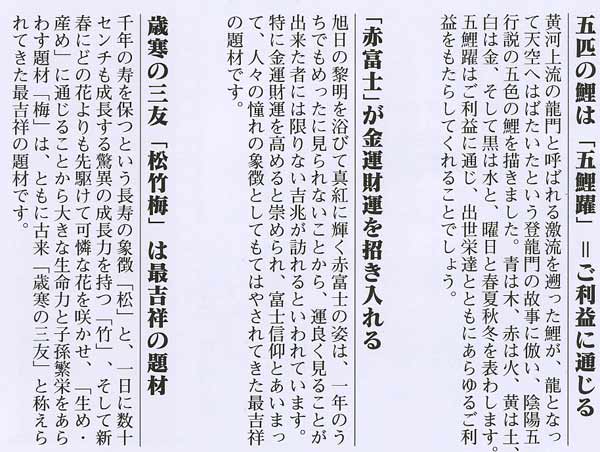 五匹の鯉は「五鯉躍」＝ご利益に通じる
黄河上流の龍門と呼ばれる激流を遡った鯉が、龍となっ
て天空へはばたいたという登龍門の故事に倣い、陰陽五
行説の五色の鯉を描きました。青は木、赤は火、黄は土、
白は金、そして黒は水と、曜日と春夏秋冬を表わします。
五鯉躍はご利益に通じ、出世栄達とともにあらゆるご利
益をもたらしてくれることでしょう。
「赤富士」が金運財運を招き入れる
旭日の黎明を浴びて真紅に輝く赤富士の姿は、一年のう
ちでもめったに見られないことから、運良く見ることが
出来た者には限りない吉兆が訪れるといわれています。
特に金運財運を高めると崇められ、富士信仰とあいまっ
て、人々の憧れの象徴としてもてはやされてきた最吉祥
の題材です。
歳寒の三友「松竹梅」は最吉祥の題材
千年の寿を保つという長寿の象徴「松」と、一日に数十
センチも成長する驚異の成長力を持つ「竹」、そして新
春にどの花よりも先駆けて可憐な花を咲かせ、「生め・
産め」に通じることから大きな生命力と子孫繁栄をあら
わす題材「梅」は、ともに古来「歳寒の三友」と称えら
れてきた最吉祥の題材です。